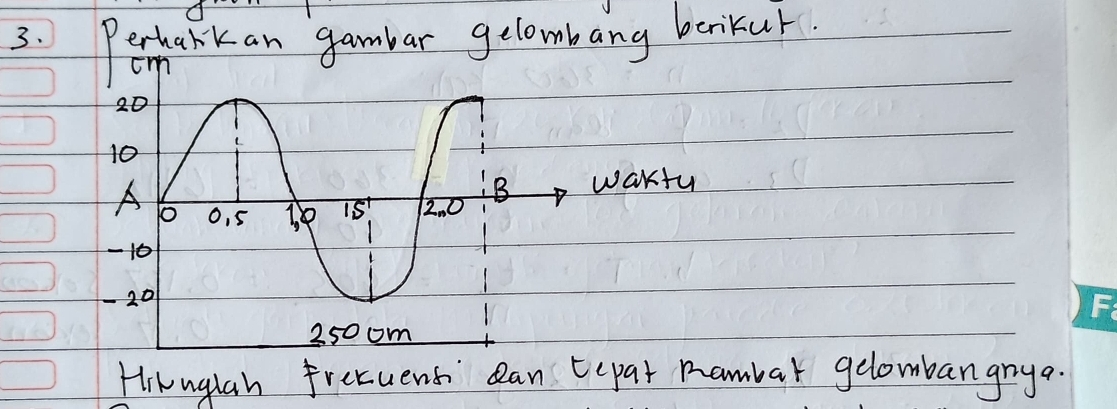 3. Perhatikan gambar gelombang berikut.
cm
20
10
A
0 0,5 1,0 15 2,0 B Waktu
-10
-20
250 cm
Hitunglah frekuensi dan cepat rambat gelombangnya.
Fa